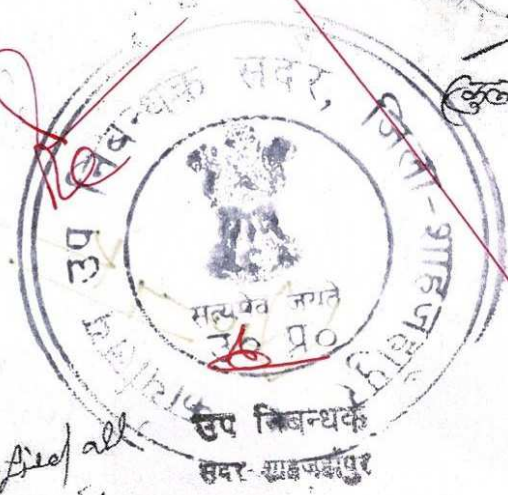 कार्यालय उप निबन्धक सदर, जिला-शाहजहाँपुर
सत्यमेव जयते
उ० प्र०
उप निबन्धक
सदर-शाहजहाँपुर
all